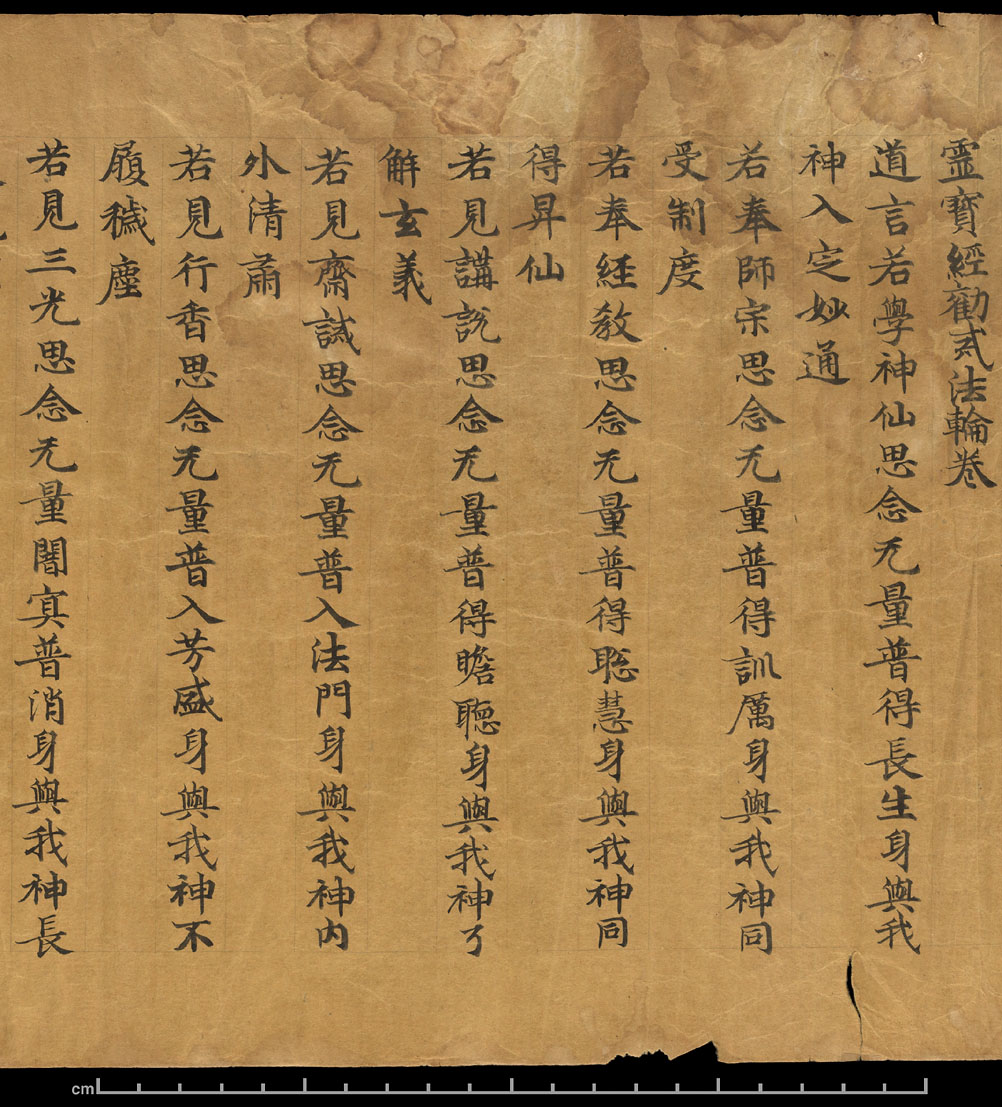 霊寳經勸戒法輪卷
道言若學神仙思念无量普得長生身與我
神入定妙通
若奉師宗思念无量普得訓厲身與我神同
受制度
若奉經教思念无量普得聡慧身與我神同
得昇仙
若見講説思念无量普得瞻聽身與我神了
解玄義
若見齋誡思念无量普入法門身與我神内
外清肅
若見行香思念无量普入芳盛身與我神不
履穢塵
若見三光思念无量闇寘普消身與我神長
cm